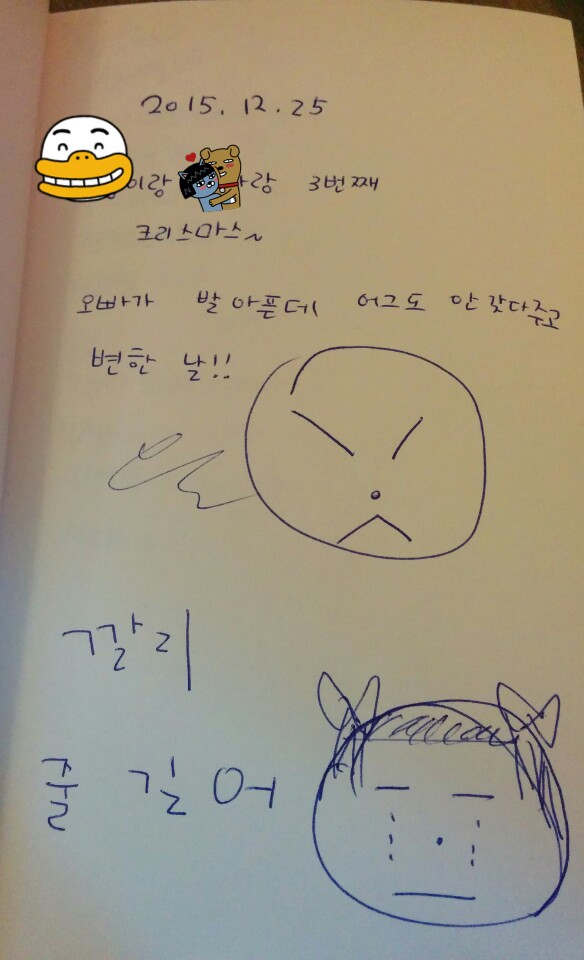 2015. 12. 25
이랑 랑 3번째
크리스마스~
오빠가 발 아픈데 어그도 안갖다주고
변한 날!!
깔리
줄 길어